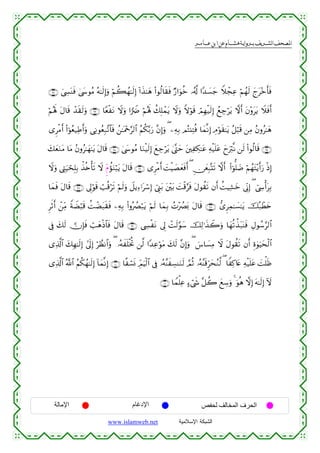 المصحف الشريف برواية هشام عن ابن عامر
فَأَخْرَجَ لَهُمْ عِجْلًا جَسَدًا لَّهُۥ خُوَارٌ فَقَالُوا۟ هَٰذَآ إِلَٰهُكُمْ وَإِلَٰهُ مُوسَىٰ فَنَسِىَ
أَفَلَا يَرَوْنَ أَلَّا يَرْجِعُ إِلَيْهِمْ قَوْلًا وَلَا يَمْلِكُ لَهُمْ ضَرًّا وَلَا نَفْعًا وَلَقَدْ قَالَ لَهُمْ
هَٰرُونُ مِن قَبْلُ يَٰقَوْمِ إِنَّمَا فُتِنتُم بِهِۦ وَإِنَّ رَبَّكُمُ ٱلرَّحْمَٰنُ فَٱتَّبِعُونِى وَأَطِيعُوٓا۟ أَمْرِى
قَالُوا۟ لَن نَّبْرَحَ عَلَيْهِ عَٰكِفِينَ حَتَّىٰ يَرْجِعَ إِلَيْنَا مُوسَىٰ قَالَ يَٰهَٰرُونُ مَا مَنَعَكَ
إِذْ رَأَيْتَهُمْ ضَلُّوٓا۟ أَلَّا تَتَّبِعَنِ أَفَعَصَيْتَ أَمْرِى قَالَ يَبْنَؤُمِّ لَا تَأْخُذْ بِلِحْيَتِى وَلَا
بِرَأْسِىٓ إِنِّى خَشِيتُ أَن تَقُولَ فَرَّقْتَ بَيْنَ بَنِىٓ إِسْرَٰٓءِيلَ وَلَمْ تَرْقُبْ قَوْلِى قَالَ فَمَا
خَطْبُكَ يَٰسَٰمِرِىُّ قَالَ بَصُرْتُ بِمَا لَمْ يَبْصُرُوا۟ بِهِۦ فَقَبَضْتُ قَبْضَةً مِّنْ أَثَرِ
ٱلرَّسُولِ فَنَبَذْتُهَا وَكَذَٰلِكَ سَوَّلَتْ لِى نَفْسِى قَالَ فَٱذْهَبْ فَإِنَّ لَكَ فِى
ٱلْحَيَوٰةِ أَن تَقُولَ لَا مِسَاسَ وَإِنَّ لَكَ مَوْعِدًا لَّن تُخْلَفَهُۥ وَٱنظُرْ إِلَىٰٓ إِلَٰهِكَ ٱلَّذِى
ظَلْتَ عَلَيْهِ عَاكِفًا لَّنُحَرِّقَنَّهُۥ ثُمَّ لَنَنسِفَنَّهُۥ فِى ٱلْيَمِّ نَسْفًا إِنَّمَآ إِلَٰهُكُمُ ٱللَّهُ ٱلَّذِى
لَآ إِلَٰهَ إِلَّا هُوَ وَسِعَ كُلَّ شَىْءٍ عِلْمًا
الحرف المخالف لحفص الإدغام الإمالة
الشبكة الإسلامية www.islamweb.net